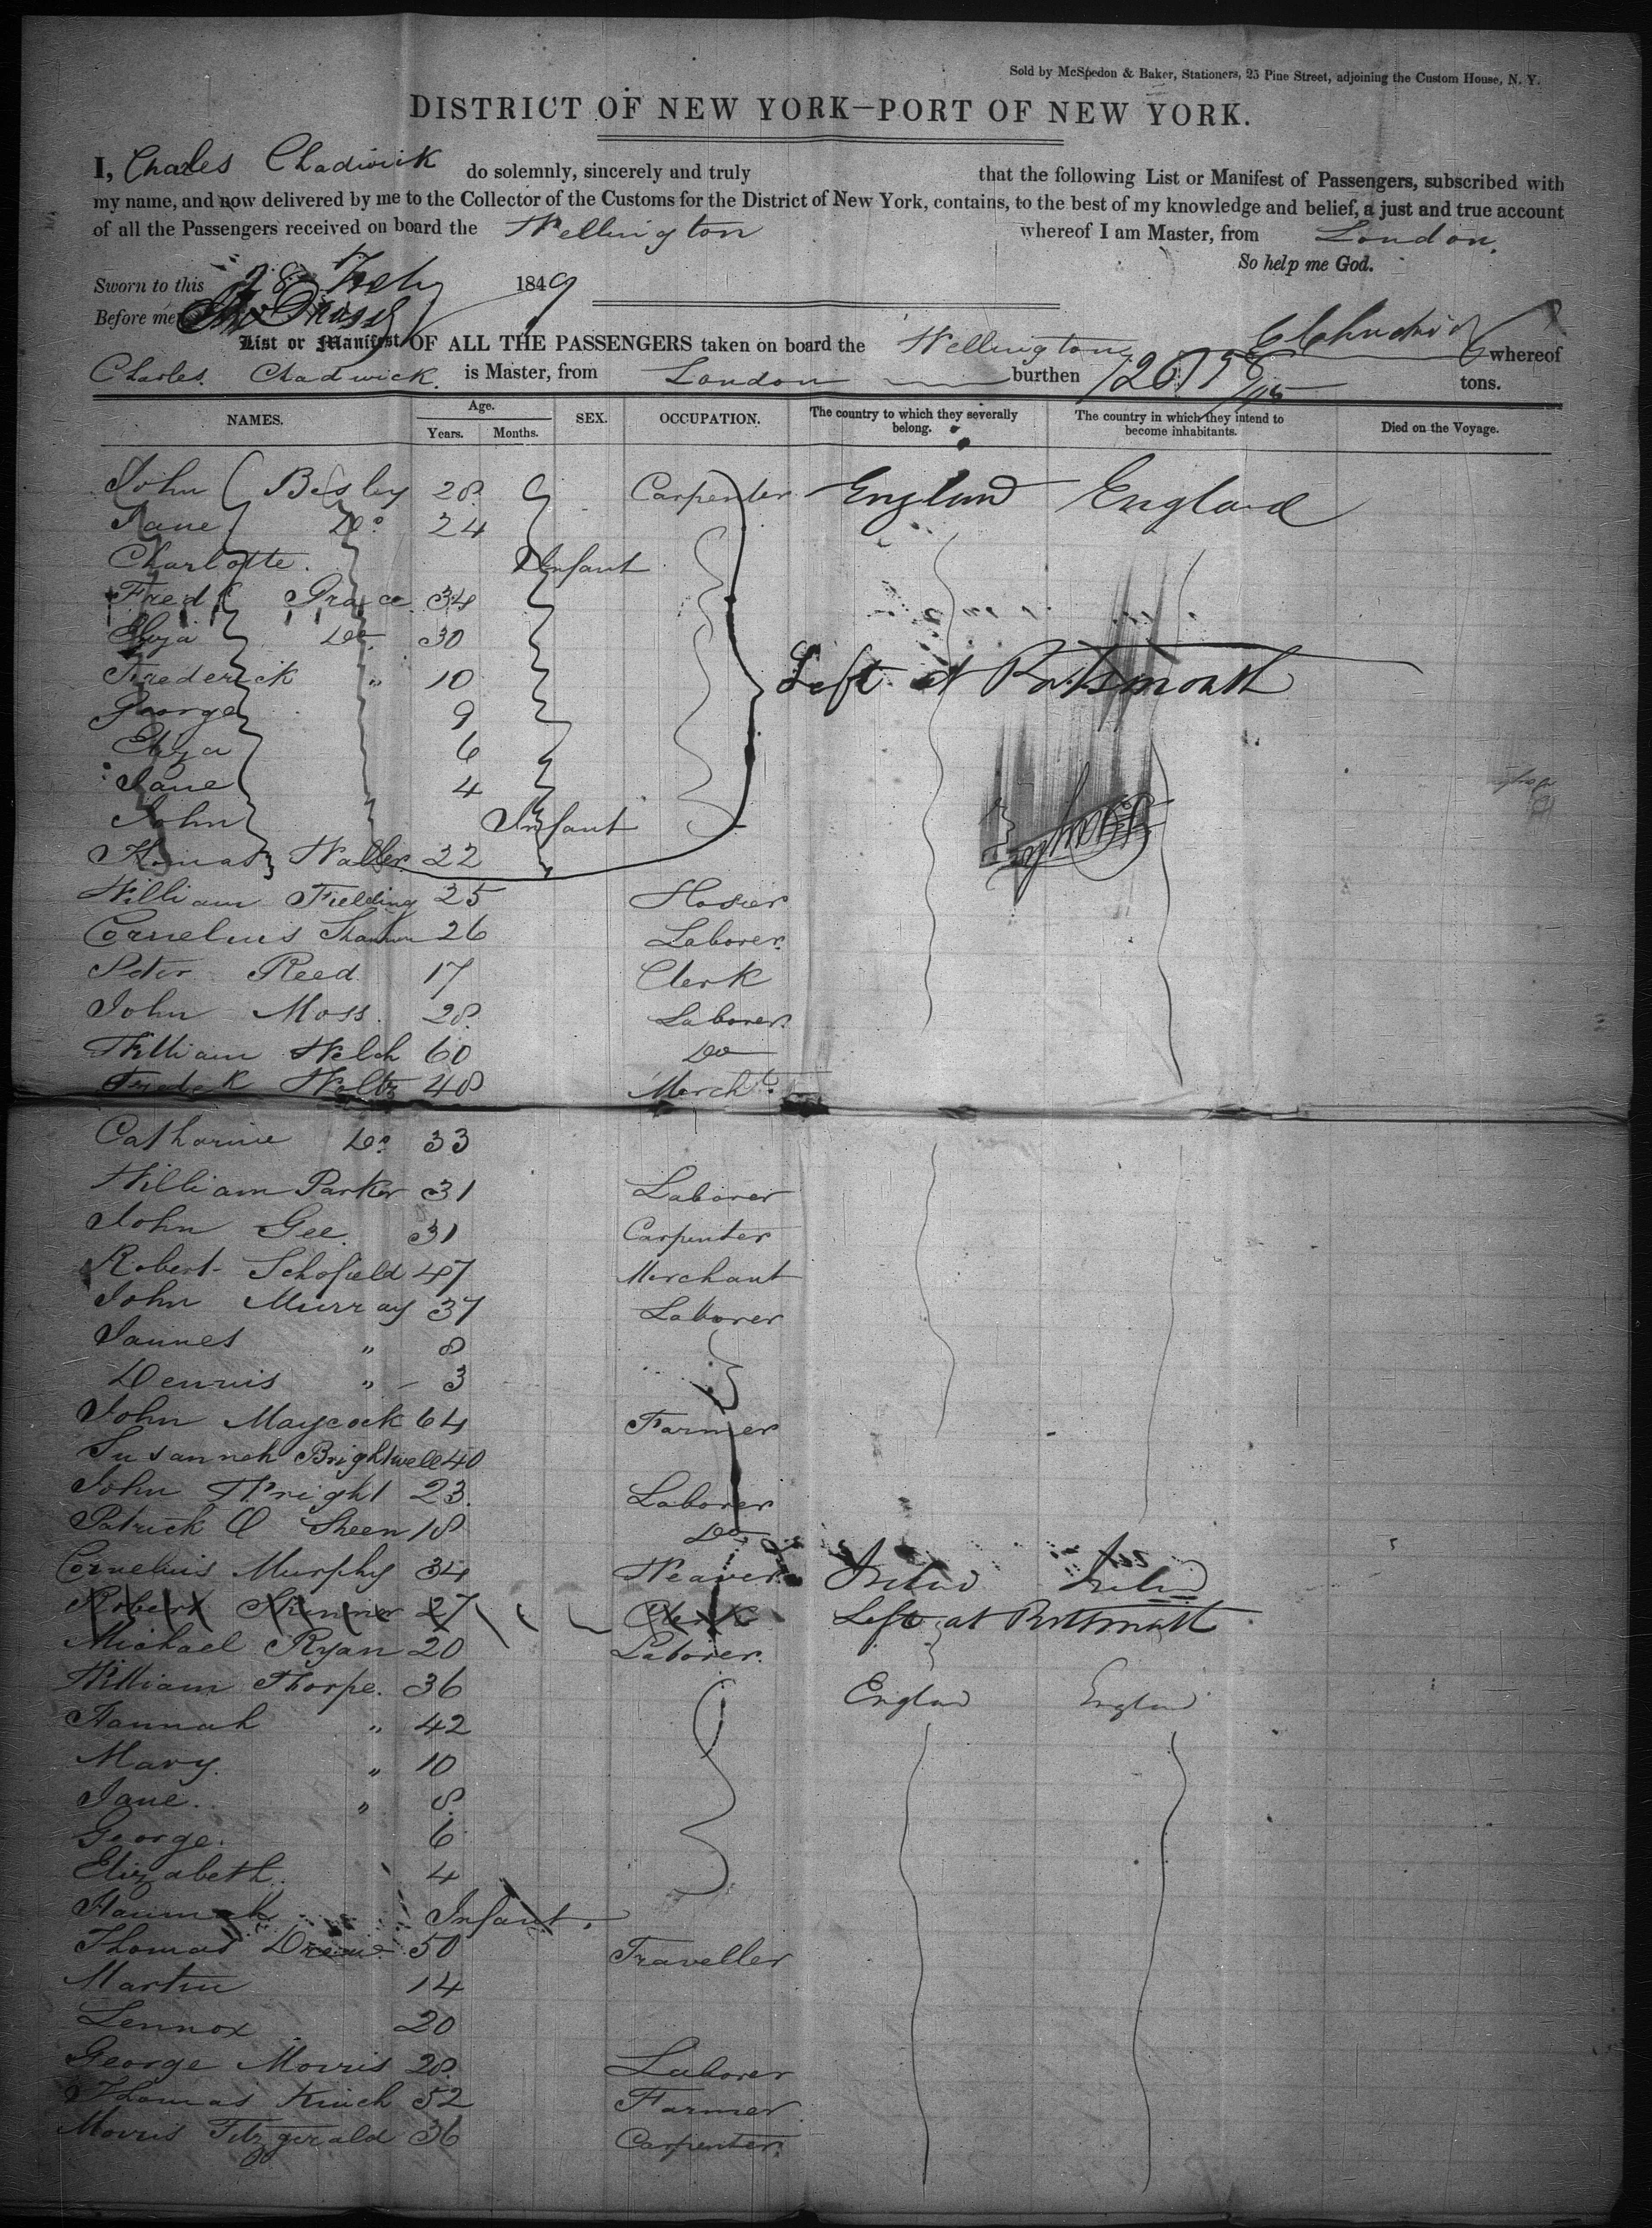 Sold by McSpedon & Baker, Stationers, 25 Pine Street, adjoining the Custom House, N. Y.
DISTRICT OF NEW YORK—PORT OF NEW YORK.
I, Charles Chadwick do solemnly, sincerely and truly that the following List or Manifest of Passengers, subscribed with
my name, and now delivered by me to the Collector of the Customs for the District of New York, contains, to the best of my knowledge and belief, a just and true account
of all the Passengers received on board the Wellington whereof I am Master, from London.
So help me God.
Sworn to this 28 Feby 1849
Before me
List or Manifest OF ALL THE PASSENGERS taken on board the Wellington whereof
Charles Chadwick. is Master, from London burthen tons.
NAMES. Age. Years. Months. SEX. OCCUPATION. The country to which they severally belong. The country in which they intend to become inhabitants. Died on the Voyage.
John Besley 28 Carpenter England England
Jane Do 24
Charlotte. Infant
Fredk Grace 34
Eliza Do 30
Frederick " 10 Left at Portsmouth
George 9
Eliza 6
Jane 4
John Infant
Thomas Waller 22
William Fielding 25 Hosier
Cornelius 26 Laborer
Peter Reed 17 Clerk
John Moss 28 Laborer
William Welch 60 Do
Fredek Woltz 48 Mercht.
Catharine Do 33
William Parker 31 Laborer
John Gee 31 Carpenter
Robert Schofield 47 Merchant
John Murray 37 Laborer
James " 8
Dennis " 3
John Maycock 64 Farmer
Susannah Brightwell 40
John Wright 23 Laborer
Patrick O Sheen 18 Do
Cornelius Murphy 34 Weaver Ireland Ireland
Robert Skinner 27 Clerk Left at Portsmouth
Michael Ryan 20 Laborer
William Thorpe 36 England England
Hannah " 42
Mary " 10
Jane " 8
George 6
Elizabeth 4
Hannah Infant
Thomas 50 Traveller
Martin 14
Lennox 20
George Morris 28 Laborer
Thomas Kinch 52 Farmer
Morris Fitzgerald 36 Carpenter